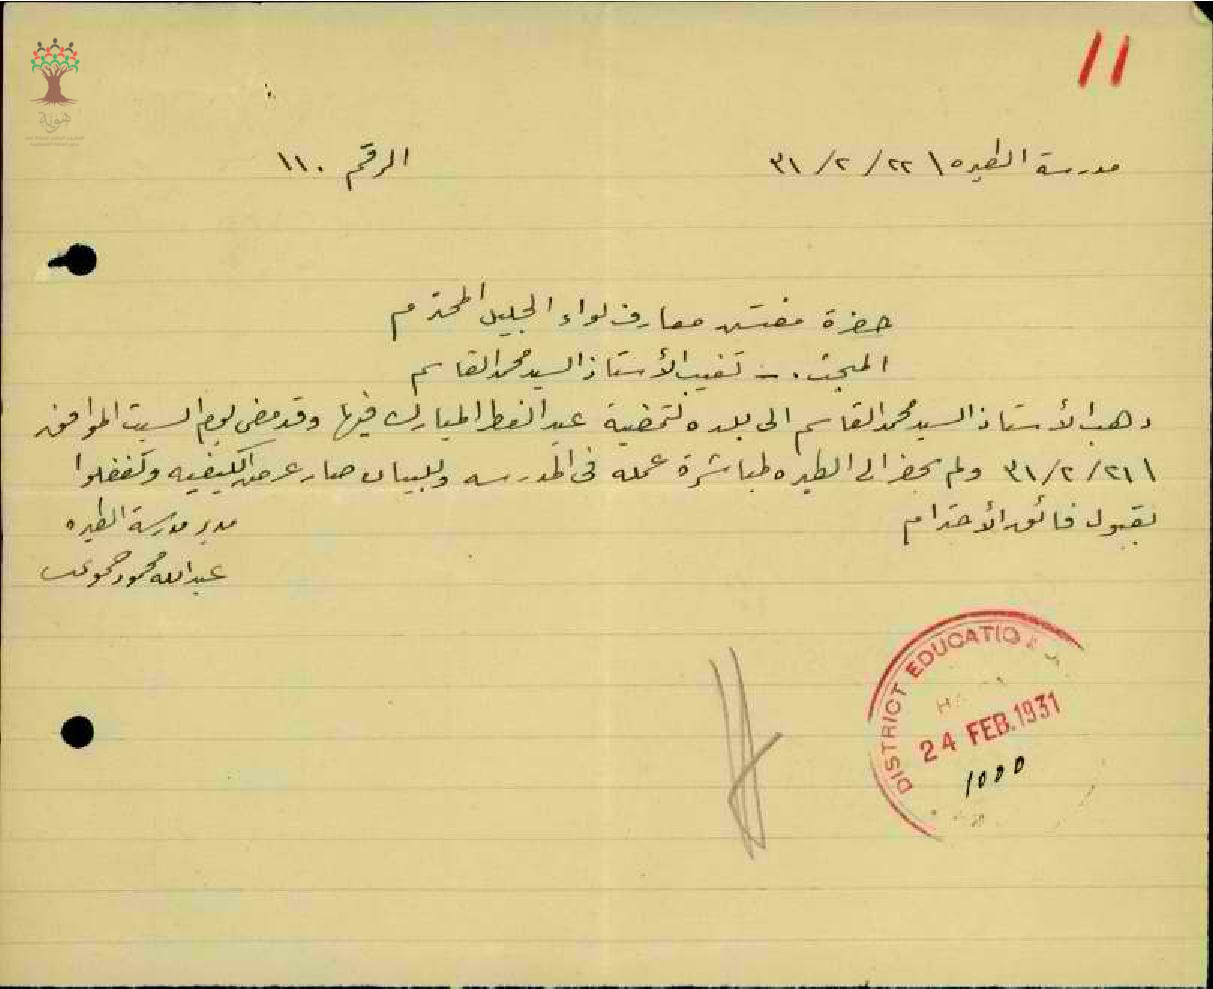 ١١
مدرسة الطيره ٢٢/ ٢/ ٣١
الرقم ١١٠
حضرة مفتش معارف لواء الجليل المحترم
المبحث :- تغيب الأستاذ السيد محمد القاسم
ذهب الأستاذ السيد محمد القاسم الى بلده لتمضية عيد الفطر المبارك فيها وقد مضى يوم السبت الموافق
٢١/ ٢/ ٣١ ولم يحضر الى الطيره لمباشرة عمله في المدرسه وللبيان صار عرض الكيفيه وتفضلوا
بقبول فائق الأحترام
مدير مدرسة الطيره
عبدالله محمود
DISTRICT EDUCATIO
24 FEB. 1931
هوية